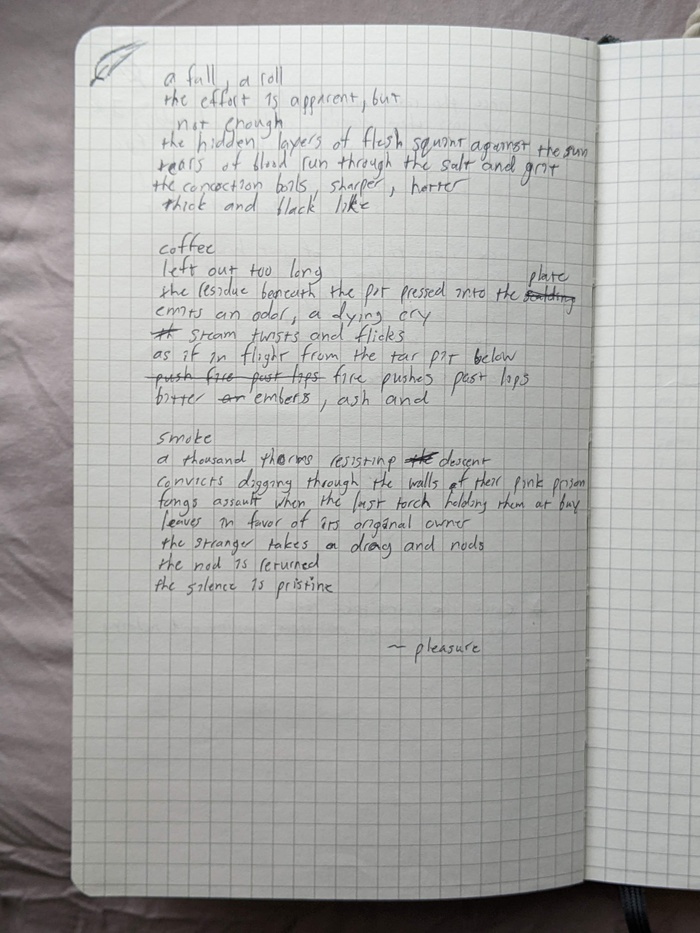 a fall, a roll
the effort is apparent, but
not enough
the hidden layers of flesh squint against the sun
tears of blood run through the salt and grit
the concoction boils, sharper, hotter
thick and black like
coffee
left out too long
the residue beneath the pot pressed into the plate
emits an odor, a dying cry
steam twists and flicks
as if in flight from the tar pit below
push fire past lips fire pushes past lips
bitter embers, ash and
smoke
a thousand thorns resisting the descent
convicts digging through the walls of their pink prison
fangs assault when the last torch holding them at bay
leaves in favor of its original owner
the stranger takes a drag and nods
the nod is returned
the silence is pristine
~ pleasure